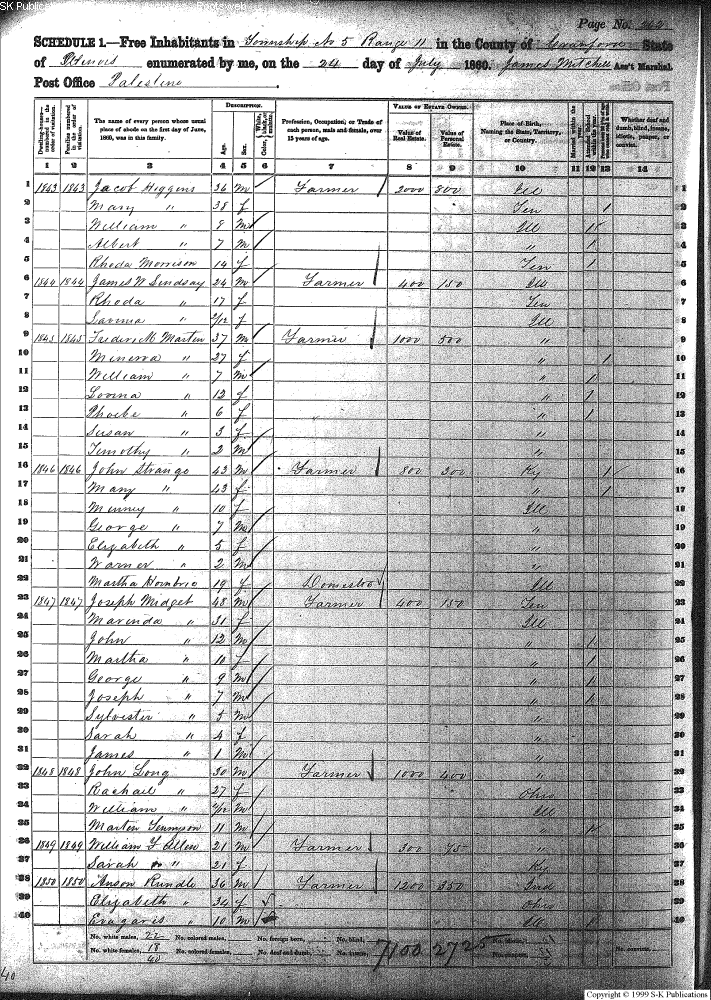 SK Publications
Page No. 242
SCHEDULE 1.—Free Inhabitants in Township No 5 Range 11 in the County of Crawford State
of Illinois enumerated by me, on the 24 day of July 1860. James Mitchell Ass't Marshal.
Post Office Palestine
Dwelling-houses—numbered in the order of visitation.
Families numbered in the order of visitation.
The name of every person whose usual place of abode on the first day of June, 1860, was in this family.
DESCRIPTION.
Age.
Sex.
Color, White, black, or mulatto.
Profession, Occupation, or Trade of each person, male and female, over 15 years of age.
VALUE OF ESTATE OWNED.
Value of Real Estate.
Value of Personal Estate.
Place of Birth, Naming the State, Territory, or Country.
Married within the year.
Whether deaf and dumb, blind, insane, idiotic, pauper, or convict.
1 2 3 4 5 6 7 8 9 10 11 12 13 14
1 1843 1843 Jacob Higgens 36 M Farmer 2000 800 Ill 1
2 Mary " 38 f Ten 1 2
3 William " 8 M Ill 1 3
4 Albert " 7 M " 1 4
5 Rhoda Morrison 14 f Ten 1 5
6 1844 1844 James N Lindsay 24 M Farmer 400 150 Ill 6
7 Rhoda " 17 f Ten 7
8 Lavina " 2/12 f Ill 8
9 1845 1845 Frederic M Marten 37 M Farmer 1000 500 " 9
10 Minerva " 27 f " 1 10
11 William " 7 M " 1 11
12 Lovina " 12 f " 1 12
13 Phoebe " 6 f " 1 13
14 Susan " 3 f " 14
15 Timothy " 2 M " 15
16 1846 1846 John Strange 43 M Farmer 800 300 Ky 1 16
17 Mary " 43 f " 1 17
18 Minney " 10 f Ill 18
19 George " 7 M " 19
20 Elizabeth " 5 f " 20
21 Warner " 2 M " 21
22 Martha Hornbric 19 f Domestic Ill 22
23 1847 1847 Joseph Midget 48 M Farmer 400 150 Ten 23
24 Marinda " 31 f Ill 24
25 John " 12 M " 1 25
26 Martha " 10 f " 1 26
27 George " 9 M " 1 27
28 Joseph " 7 M " 1 28
29 Sylvester " 5 M " 29
30 Sarah " 4 f " 30
31 James " 1 M " 31
32 1848 1848 John Long 30 M Farmer 1000 400 " 32
33 Rachael " 27 f Ohio 33
34 William " M Ill 34
35 Marten Tennyson 11 M " 1 35
36 1849 1849 William T Allen 21 M Farmer 300 75 " 36
37 Sarah " 21 f Ky 37
38 1850 1850 Anson Rundle 36 M Farmer 1200 350 Ind 38
39 Elizabeth " 34 f Ohio 39
40 " 10 M Ill 1 40
No. white males, 22 No. colored males, No. foreign born, No. blind, 7100 2725 No. idiotic,
No. white females, 18 No. colored females, No. deaf and dumb, No. insane, No. paupers, No. convicts,
40
40
Copyright © 1999 S-K Publications